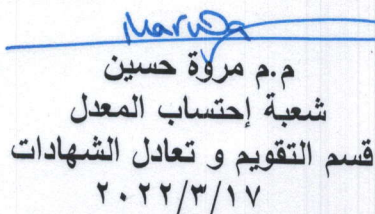 Marwa
م.م مروة حسين
شعبة إحتساب المعدل
قسم التقويم و تعادل الشهادات
٢٠٢٢/٣/١٧